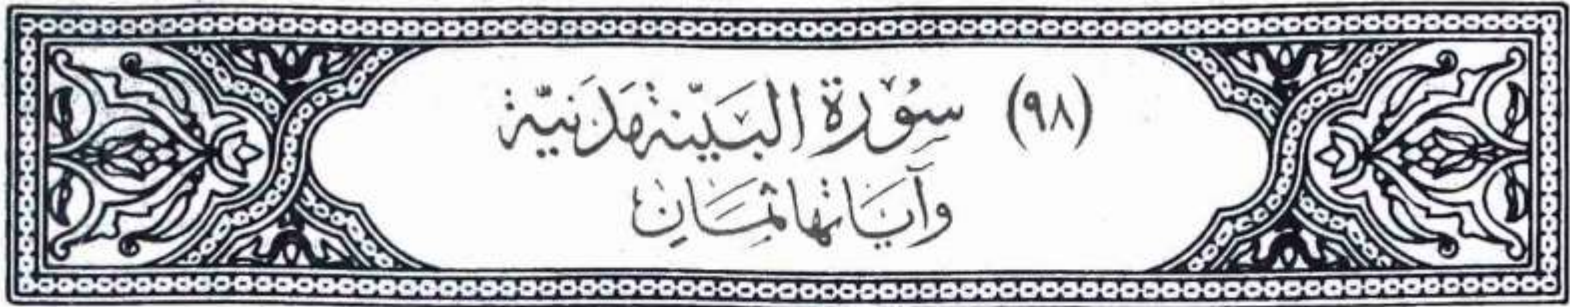 (٩٨) سُوْرَة البَيّنَة مَدَنيّة
وَآيَاتهَا ثمَانِ